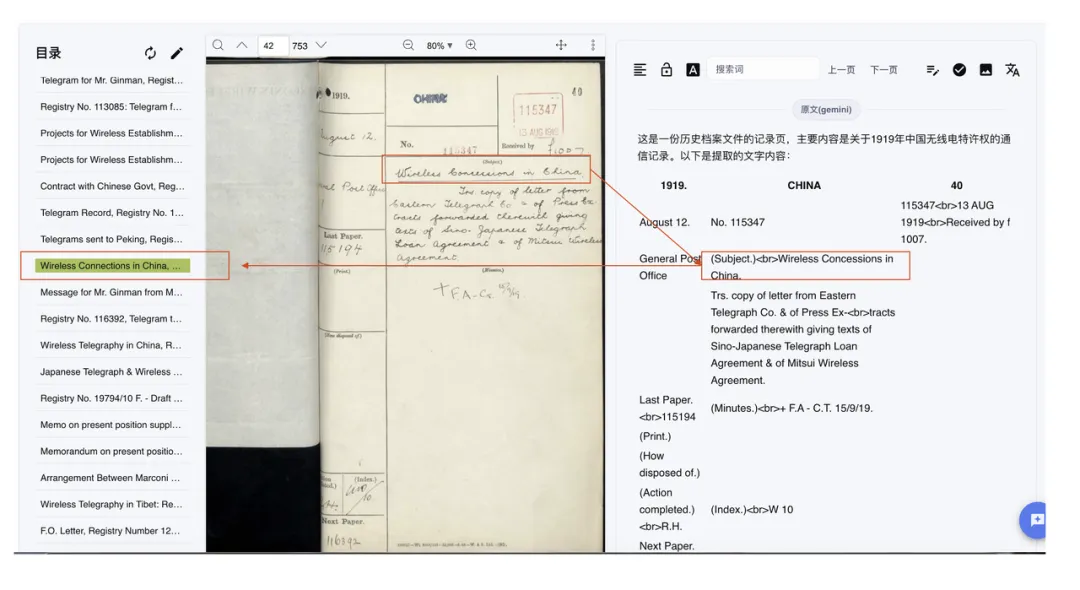 目录
Telegram for Mr. Ginman, Regist...
Registry No. 113085: Telegram f...
Projects for Wireless Establishm...
Projects for Wireless Establishm...
Contract with Chinese Govt, Reg...
Telegram Record, Registry No. 1...
Telegrams sent to Peking, Regis...
Wireless Connections in China, ...
Message for Mr. Ginman from M...
Registry No. 116392, Telegram t...
Wireless Telegraphy in China, R...
Japanese Telegraph & Wireless ...
Registry No. 19794/10 F. - Draft ...
Memo on present position suppl...
Memorandum on present positio...
Arrangement Between Marconi ...
Wireless Telegraphy in Tibet: Re...
F.O. Letter, Registry Number 12...
42 753 80%
1919.
CHINA
40
115347
13 AUG
August 12.
No. 115347
Received by
(Subject.)
Wireless Concessions in China.
Post Office
Trs copy of letter from
Eastern Telegraph Co & of Press Ex-
tracts forwarded therewith giving
texts of Sino-Japanese Telegraph
Loan Agreement & of Mitsui Wireless
Agreement.
Last Paper.
115194
(Print.)
(Minutes.)
+ F.A-
(How disposed of)
(Index.)
Next Paper.
116392
A 搜索词 上一页 下一页
原文(gemini)
这是一份历史档案文件的记录页，主要内容是关于1919年中国无线电特许权的通
信记录。以下是提取的文字内容：
1919. CHINA 40
115347<br>13 AUG
August 12. No. 115347 1919<br>Received by f
1007.
General Post (Subject.)<br>Wireless Concessions in
Office China.
Trs. copy of letter from Eastern
Telegraph Co. & of Press Ex-<br>tracts
forwarded therewith giving texts of
Sino-Japanese Telegraph Loan
Agreement & of Mitsui Wireless
Agreement.
Last Paper.
<br>115194 (Minutes.)<br>+ F.A - C.T. 15/9/19.
(Print.)
(How
disposed of.)
(Action
completed.) (Index.)<br>W 10
<br>R.H.
Next Paper.